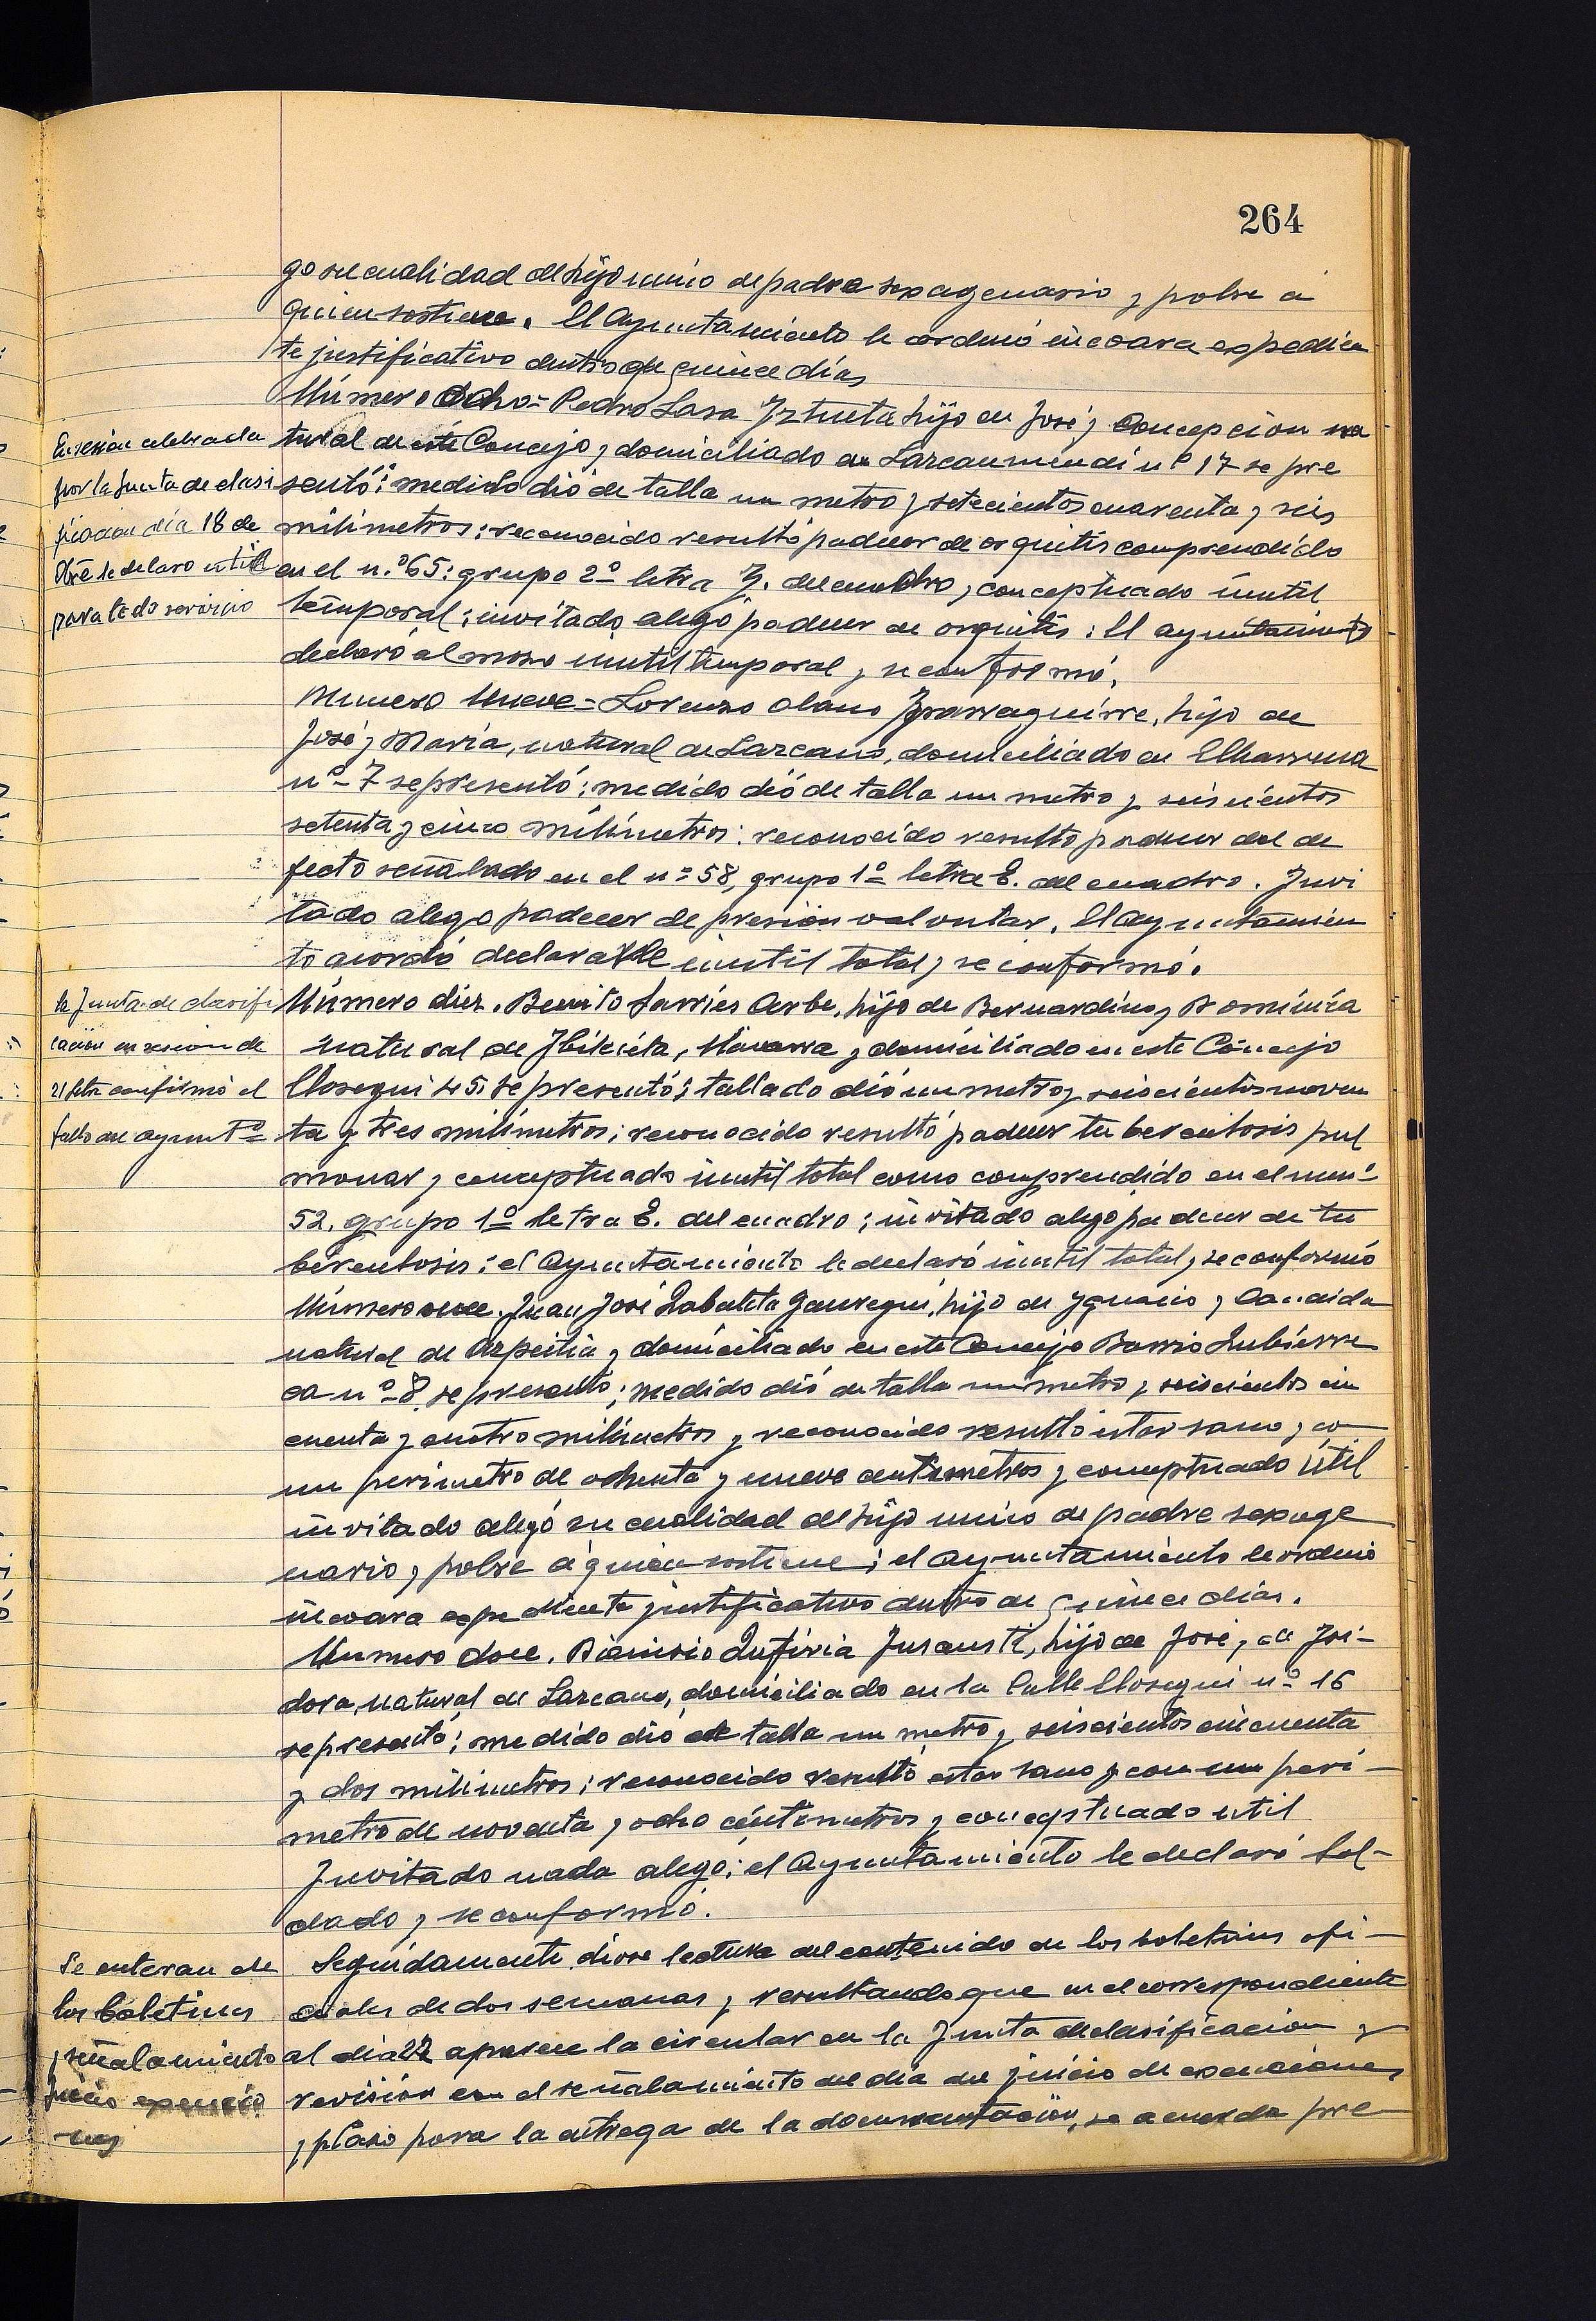 264
go su cualidad de hijo unico de padre sexagenario y pobre á
quien sostiene. El Ayuntamiento le ordenó incoara expedien
te justificativo dentro de quince días
Número Ocho = Pedro Lasa Iztueta hijo de José y Concepcion na
tural de este Concejo y domiciliado en Lazcaumendi nº 17 se pre
sentó: medido dió de talla un metro y setecientos cuarenta y seis
milimetros: reconocido resultó padecer de orquitis comprendido
en el n.º 65: grupo 2º letra J. del cuadro y conceptuado inutil
temporal; invitado alegó padecer de orquitis: El ayuntamiento
declaró al mozo inutil temporal y se conformó.
En sesión celebrada
por la Junta de clasi
ficacion día 18 de
Obre le declaro util
para todo servicio
Numero Nueve = Lorenzo Olano Yparraguirre, hijo de
José y Maria, natural de Lazcano, domiciliado en Elbarrena
nº 7 se presentó; medido dió de talla un metro y seiscientos
setenta y cinco milimetros: reconocido resulto padecer del de
fecto señalado en el nº 58, grupo 1º letra E. del cuadro. Invi
tado alego padecer de presion val ontar. El Ayuntamien
to acordó declararle inutil total y se conformó.
Número diez. Benito Sarries Arbe, hijo de Bernardino y Dominica
natural de Ibilcieta, Navarra y domiciliado en este Concejo
Elosegui 45, se presentó; tallado dió un metro y seiscientos noven
ta y tres milimetros; reconocido resultó padecer tuberculosis pul
monar y conceptuado inutil total como comprendido en el num.º
52, grupo 1º letra E. del cuadro; invitado alego padecer de tu
berculosis; el Ayuntamiento le declaró inutil total y se conformó
la Junta de clasifi
cación en sesion de
21 febre confirmó el
fallo del ayuntº
Número once. Juan José Zabaleta Jauregui, hijo de Ygnacio y Candida
natural de Azpeitia y domiciliado en este Concejo Barrio Zubierre
ca nº 8 se presentó; medido dió de talla un metro y seiscientos cin
cuenta y cuatro milimetros y reconocido resultó estar sano y co
un perimetro de ochenta y nueve centimetros y conceptuado útil
invitado alegó su cualidad de hijo unico de padre sexage
nario y pobre á quien sostiene; el Ayuntamiento le ordenó
incoara expediente justificativo dentro de quince días.
Numero doce. Dionisio Zufiria Insausti, hijo de José y de Isi-
dora, natural de Lazcano, domiciliado en la Calle Elosegui nº 16
se presentó; medido dió de talla un metro y seiscientos cincuenta
y dos milimetros; reconocido resultó estar sano y con un peri-
metro de noventa y ocho céntimetros y conceptuado util
Invitado nada alego; el Ayuntamiento le declaró Sol-
dado y se conformó.
Seguidamente diose lectura del contenido de los boletines ofi-
ciales de dos semanas y resultando que en el correspondiente
al dia 22 aparece la circular de la Junta de clasificacion y
revisión con el señalamiento del día del juicio de exenciones
y plazo para la entrega de la documentación, se acuerda pre
Se enteran de
los boletines
y señalamiento
juicio exencio
nes